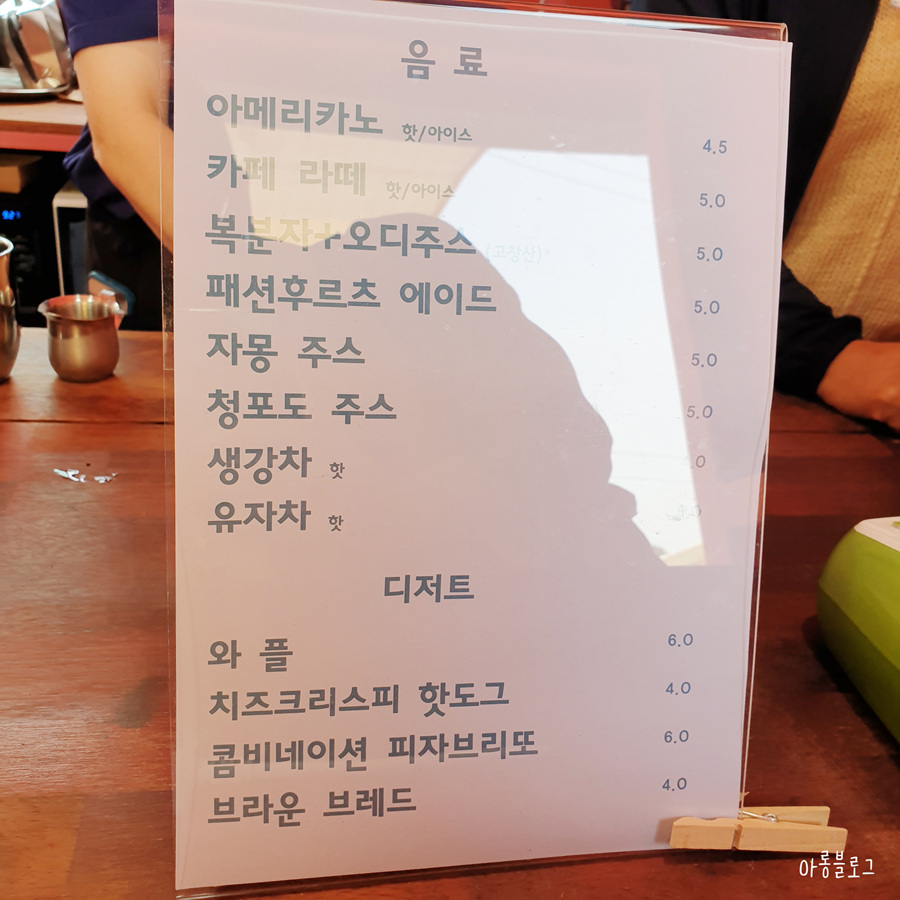 음 료
아메리카노 핫/아이스 4.5
카페 라떼 핫/아이스 5.0
복분자+오디주스 (고창산) 5.0
패션후르츠 에이드 5.0
자몽 주스 5.0
청포도 주스 5.0
생강차 핫
유자차 핫
디저트
와 플 6.0
치즈크리스피 핫도그 4.0
콤비네이션 피자브리또 6.0
브라운 브레드 4.0
아롱블로그